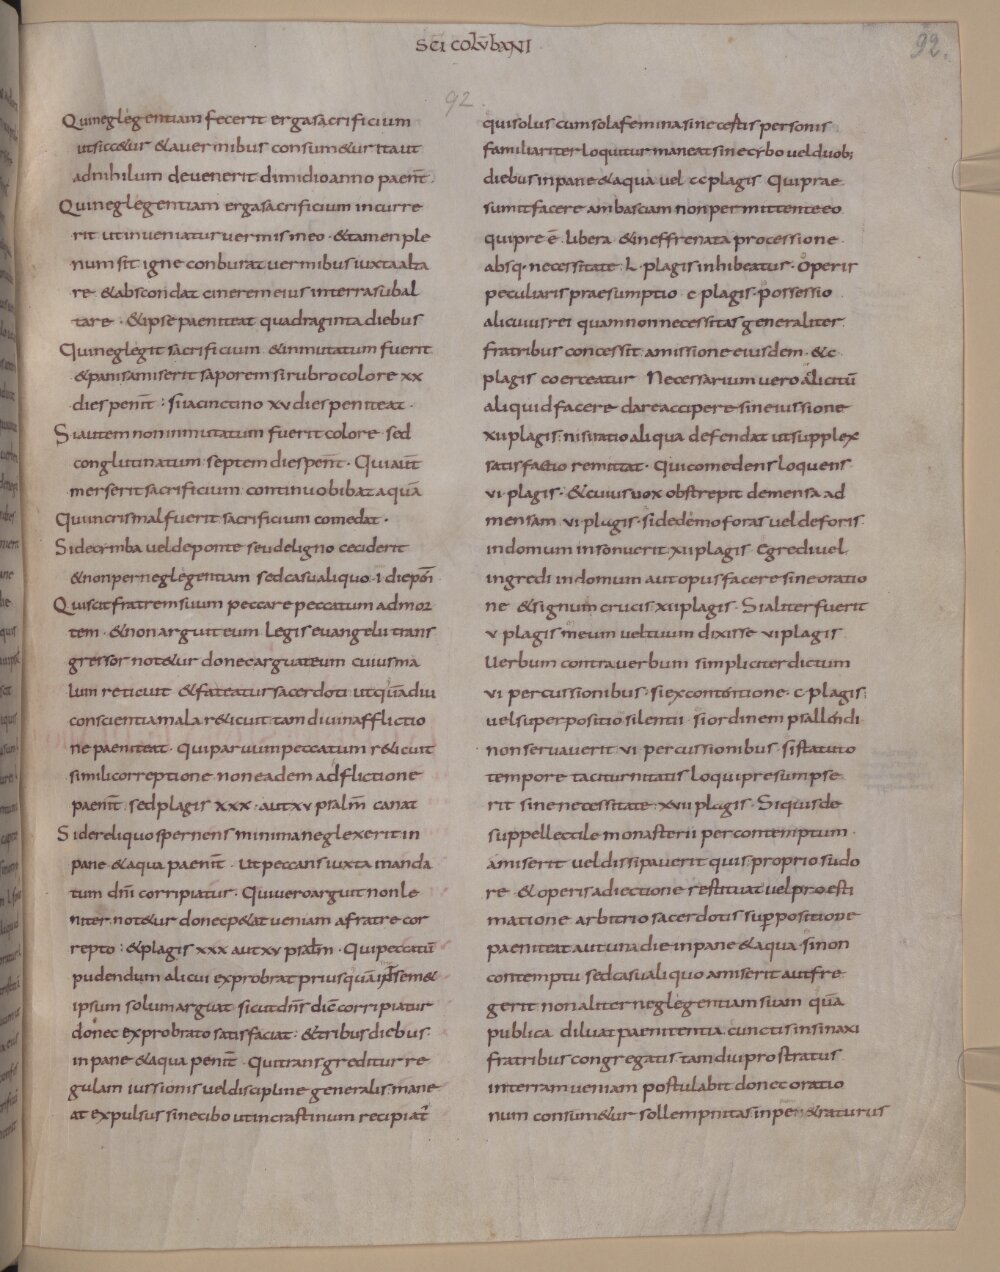 SCI COLŪBANI
92.
92.
Qui neglegentiam fecerit erga sacrificium
ut siccetur & a vermibus consumetur ita ut
ad nihilum devenerit dimidio anno paenit̄
Qui neglegentiam erga sacrificium incurre
rit ut inveniatur vermis in eo · & tamen ple
num sit igne conburat vermibus iuxta alta
re · & abscondat cinerem eius in terra sub al
tare · & ipse paeniteat quadraginta diebus
Qui neglegit sacrificium & inmutatum fuerit
& panis amiserit saporem si rubro colore xx
dies penit̄ : si iacinctino xv dies peniteat ·
Si autem non inmutatum fuerit colore sed
conglutinatum septem dies penit̄ · Qui aut̄
merserit sacrificium continuo bibat aquā
Qui in crismal fuerit sacrificium comedat ·
Si de cymba vel de ponte seu de ligno ceciderit
& non per neglegentiam sed casu aliquo · I die pen̄
Qui scit fratrem suum peccare peccatum ad mor
tem · & non arguit eum legis evangelii trans
gressor notetur donec arguat eum cuius ma
lum reticuit & fateatur sacerdoti ut quādiu
conscientia mala reticuit tam diu in afflictio
ne paeniteat · Qui parvum peccatum reticuit
simili correptione non eadem adflictione
paenit̄ sed plagis xxx · aut xv psalm̄ canat
Si de reliquo spernens minima neglexerit in
pane & aqua paenit̄ · Ut peccans iuxta manda
tum dn̄i corripiatur · Qui vero arguit non le
niter notetur donec petat veniam a fratre cor
repto : & plagis xxx aut xv psalm̄ · Qui peccatū
pudendum alicui exprobrat priusquā ip̄sem &
ipsum solum arguat sicut dn̄s dic̄ corripiatur
donec exprobrato satisfaciat : & tribus diebus
in pane & aqua penit̄ · Qui transgreditur re
gulam iussionis vel discipline generalis mane
at expulsus sine cibo ut in crastinum recipiat̄
qui solus cum sola femina sine certis personis
familiariter loquitur maneat sine cybo vel duob;
diebus in pane & aqua vel cc plagis Qui prae
sumit facere ambasciam non permittente eo
qui pre ē · libera & ineffrenata processione
absq· necessitate · L · plagis inhibeatur · Operis
peculiaris praesumptio c plagis · possessio
alicuius rei quam non necessitas generaliter
fratribus concessit amissione eiusdem · & c
plagis coerceatur Necessarium vero a licitū
aliquid facere dare accipere sine iussione
xii plagis · nisi ratio aliqua defendat ut supplex
satisfactio remittat · Qui comedens loquens
vi plagis · & cuius vox obstrepit de mensa ad
mensam vi plagis · si de domo foras vel de foris
in domum insonuerit xii plagis Egredi vel
ingredi in domum aut opus facere sine oratio
ne & signum crucis xii plagis · Si aliter fuerit
v plagis meum vel tuum dixisse vi plagis
Verbum contra verbum simpliciter dictum
vi percussionibus · si ex contentione · c · plagis :
vel superpositio silentii si ordinem psallendi
non servaverit vi percussionibus si statuto
tempore taciturnitatis loqui presumpse
rit sine necessitate xvii plagis · Si quis de
suppellectile monasterii per contemptum ·
amiserit vel dissipaverit quis proprio sudo
re & operis adiectione restituat vel pro esti
matione arbitrio sacerdotis suppositione
paeniteat aut una die in pane & aqua · si non
contemptu sed casu aliquo amiserit aut fre
gerit non aliter neglegentiam suam quā
publica diluat paenitentia cunctis in sinaxi
fratribus congregatis tam diu prostratus
in terram veniam postulabit donec oratio
num consumetur sollempnitas inpetraturus